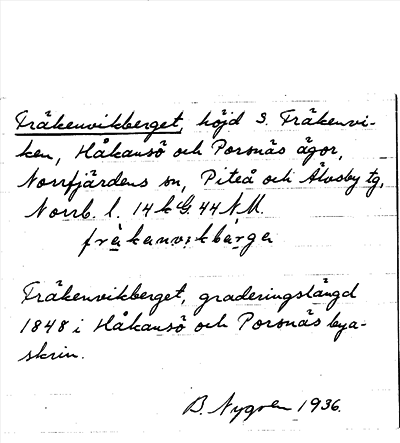 Fräkenvikberget, höjd S. Fräkenvi-
ken, Håkansö och Porsnäs ägor,
Norrfjärdens sn, Piteå och Älvsby tg,
Norrb. l. 14 k G. 44 N M.
fräkenvikbärge
Fräkenvikberget, graderingslängd
1848 i Håkansö och Porsnäs bya-
skrin.
B. Nygren 1936.